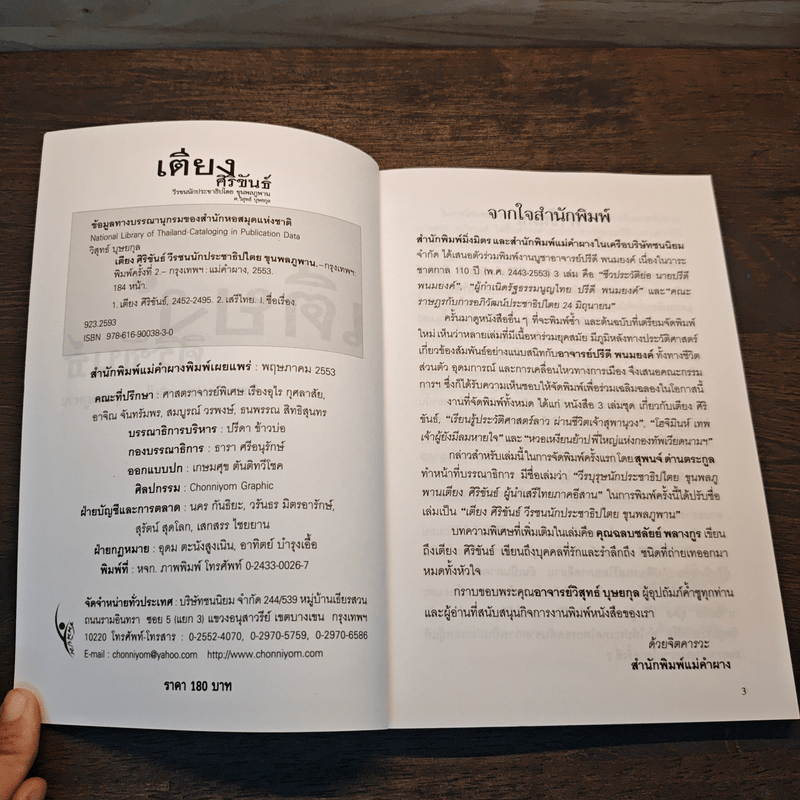 เตียง
ศิริขันธ์
วีรชนนักประชาธิปไตย ขุนพลภูพาน
ศ.วิสุทธ์ บุษยกุล
ข้อมูลทางบรรณานุกรมของสำนักหอสมุดแห่งชาติ
National Library of Thailand Cataloging in Publication Data
วิสุทธ์ บุษยกุล
เตียง ศิริขันธ์ วีรชนนักประชาธิปไตย ขุนพลภูพาน.–กรุงเทพฯ:
พิมพ์ครั้งที่ 2.– กรุงเทพฯ : แม่คำผาง, 2553.
184 หน้า.
1. เตียง ศิริขันธ์, 2452-2495. 2. เสรีไทย. I. ชื่อเรื่อง.
923.2593
ISBN 978-616-90038-3-0
สำนักพิมพ์แม่คำผางพิมพ์เผยแพร่ : พฤษภาคม 2553
คณะที่ปรึกษา : ศาสตราจารย์พิเศษ เรืองอุไร กุศลาสัย,
อาจิณ จันทรัมพร, สมบูรณ์ วรพงษ์, ธนพรรณ สิทธิสุนทร
บรรณาธิการบริหาร : ปรีดา ข้าวบ่อ
กองบรรณาธิการ : ธารา ศรีอนุรักษ์
ออกแบบปก : เกษมศุข ตันติทวีโชค
ศิลปกรรม : Chonniyom Graphic
ฝ่ายบัญชีและการตลาด : นคร กันธิยะ, วรันธร มิตรอารักษ์,
สุรัตน์ สุดโลก, เสกสรร ไชยยาน
ฝ่ายกฎหมาย : อุดม ตะนังสูงเนิน, อาทิตย์ บำรุงเอื้อ
พิมพ์ที่ : หจก. ภาพพิมพ์ โทรศัพท์ 0-2433-0026-7
จัดจำหน่ายทั่วประเทศ : บริษัทชนนิยม จำกัด 244/539 หมู่บ้านเธียรสวน
ถนนรามอินทรา ซอย 5 (แยก 3) แขวงอนุสาวรีย์ เขตบางเขน กรุงเทพฯ
10220 โทรศัพท์-โทรสาร : 0-2552-4070, 0-2970-5759, 0-2970-6586
E-mail : chonniyom@yahoo.com http://www.chonniyom.com
ราคา 180 บาท
จากใจสำนักพิมพ์
สำนักพิมพ์มิ่งมิตร และสำนักพิมพ์แม่คำผางในเครือบริษัทชนนิยม
จำกัด ได้เสนอตัวร่วมพิมพ์งานบูชาอาจารย์ปรีดี พนมยงค์ เนื่องในวาระ
ชาตกาล 110 ปี (พ.ศ. 2443-2553) 3 เล่ม คือ "ชีวประวัติย่อ นายปรีดี
พนมยงค์", "ผู้กำเนิดรัฐธรรมนูญไทย ปรีดี พนมยงค์" และ "คณะ
ราษฎรกับการอภิวัฒน์ประชาธิปไตย 24 มิถุนายน"
ครั้นมาดูหนังสืออื่นๆ ที่จะพิมพ์ซ้ำ และต้นฉบับที่เตรียมจัดพิมพ์
ใหม่ เห็นว่าหลายเล่มที่มีเนื้อหาร่วมยุคสมัย มีภูมิหลังทางประวัติศาสตร์
เกี่ยวข้องสัมพันธ์อย่างแนบสนิทกับอาจารย์ปรีดี พนมยงค์ ทั้งทางชีวิต
ส่วนตัว อุดมการณ์ และการเคลื่อนไหวทางการเมือง จึงเสนอคณะกรรม
การฯ ซึ่งก็ได้รับความเห็นชอบให้จัดพิมพ์เพื่อร่วมเฉลิมฉลองในโอกาสนี้
งานที่จัดพิมพ์ทั้งหมด ได้แก่ หนังสือ 3 เล่มชุด เกี่ยวกับเตียง ศิริ
ขันธ์, "เรียนรู้ประวัติศาสตร์ลาว ผ่านชีวิตเจ้าสุพานุวง", "โฮจิมินห์ เทพ
เจ้าผู้ยังมีลมหายใจ" และ "หวอเหงียนย้าปพี่ใหญ่แห่งกองทัพเวียดนามฯ"
กล่าวสำหรับเล่มนี้ในการจัดพิมพ์ครั้งแรกโดยสุพจน์ ด่านตระกูล
ทำหน้าที่บรรณาธิการ มีชื่อเล่มว่า "วีรบุรุษนักประชาธิปไตย ขุนพลภู
พานเตียง ศิริขันธ์ ผู้นำเสรีไทยภาคอีสาน" ในการพิมพ์ครั้งนี้ได้ปรับชื่อ
เล่มเป็น "เตียง ศิริขันธ์ วีรชนนักประชาธิปไตย ขุนพลภูพาน"
บทความพิเศษที่เพิ่มเติมในเล่มคือ คุณฉลบชลัยย์ พลางกูร เขียน
ถึงเตียง ศิริขันธ์ เขียนถึงบุคคลที่รักและรำลึกถึง ชนิดที่ถ่ายเทออกมา
หมดทั้งหัวใจ
กราบขอบพระคุณอาจารย์วิสุทธ์ บุษยกุล ผู้อุปถัมภ์ค้ำชูทุกท่าน
และผู้อ่านที่สนับสนุนกิจการงานพิมพ์หนังสือของเรา
ด้วยจิตคารวะ
สำนักพิมพ์แม่คำผาง
3